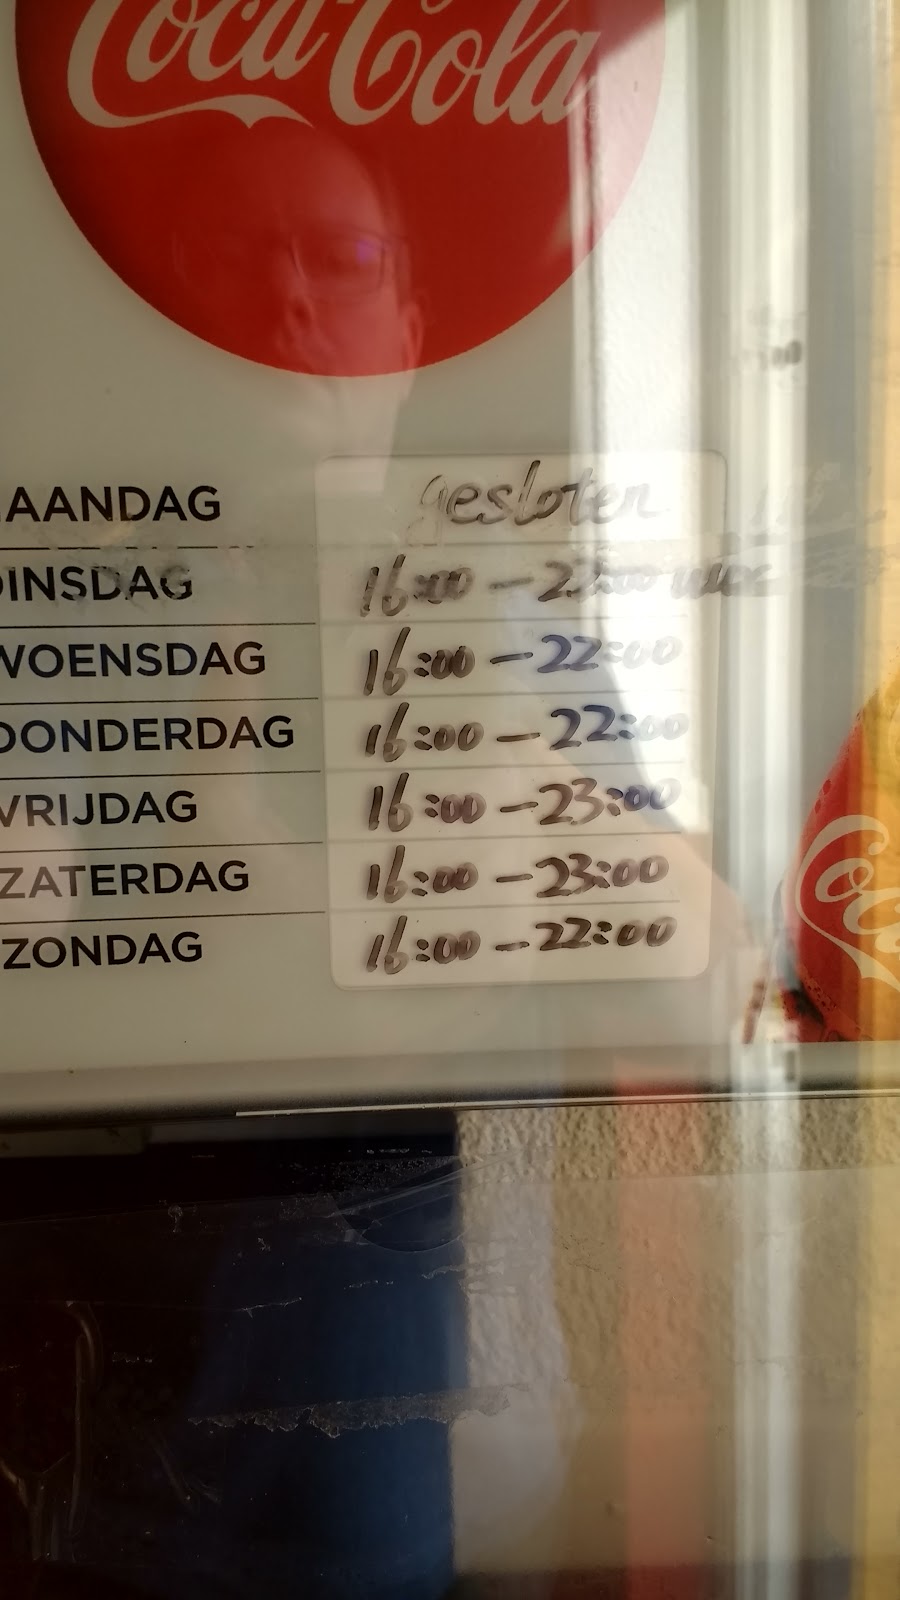 Coca-Cola
AANDAG gesloten
DINSDAG 16:00 - 22:00 uur
WOENSDAG 16:00 - 22:00
DONDERDAG 16:00 - 22:00
VRIJDAG 16:00 - 23:00
ZATERDAG 16:00 - 23:00
ZONDAG 16:00 - 22:00
Coca